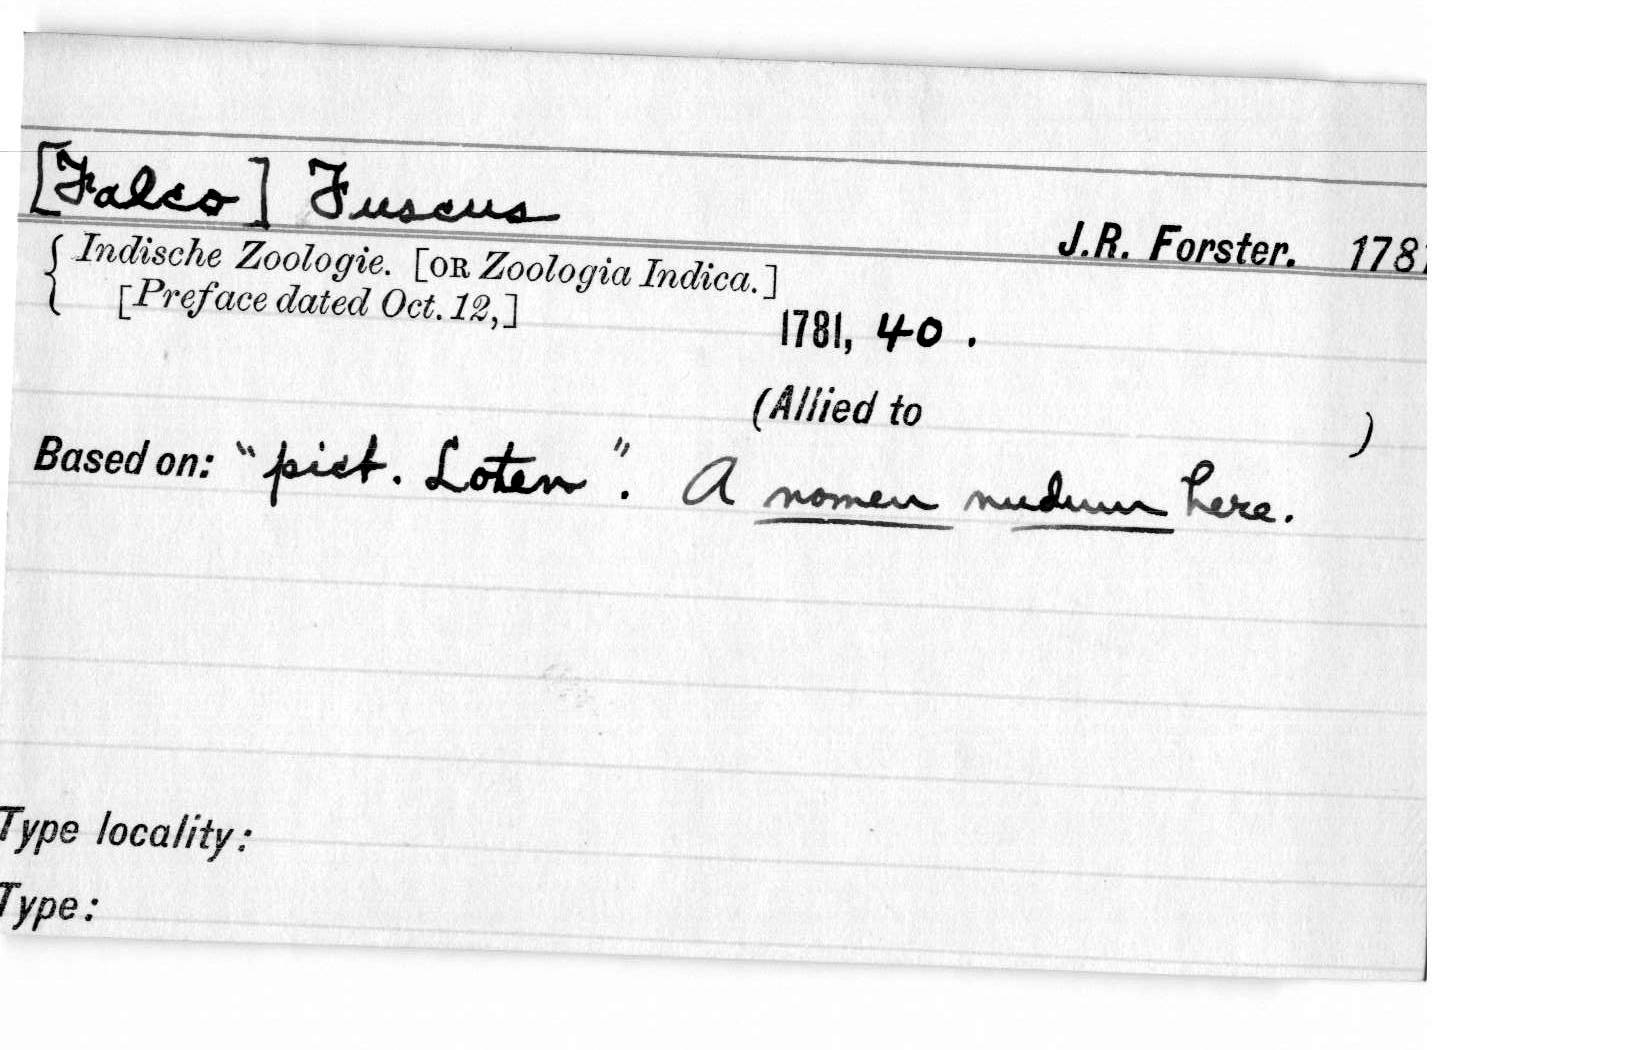 [Falco] Fuscus
J.R. Forster. 1781
{ Indische Zoologie. [OR Zoologia Indica.]
[Preface dated Oct. 12,]
1781, 40.
(Allied to )
Based on: "pict. Loten". A nomen nudum here.
Type locality:
Type: